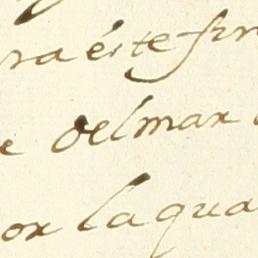 ra éste fin
e delmar
or la qua